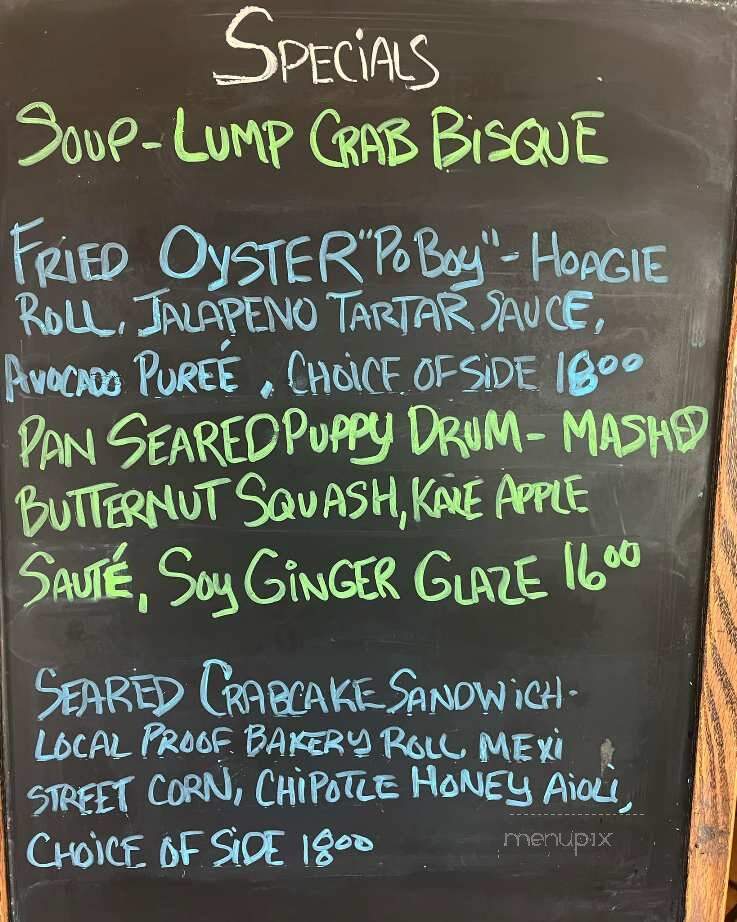 SPECiALS
SOUP - LUMP CRAB BiSQUE
FRiED OYSTER "Po Boy" - HOAGiE
ROLL, JALAPENO TARTAR SAUCE,
AVOCADO PUREÉ, CHOiCE OF SiDE 18⁰⁰
PAN SEARED PUPPY DRUM - MASHED
BUTTERNUT SQUASH, KALE APPLE
SAUTÉ, Soy GiNGER GLAZE 16⁰⁰
SEARED CRABCAKE SANDWiCH -
LOCAL PROOF BAKERY ROLL MEXi
STREET CORN, CHiPOTLE HONEY AiOLi,
CHOiCE OF SiDE 18⁰⁰
menupix